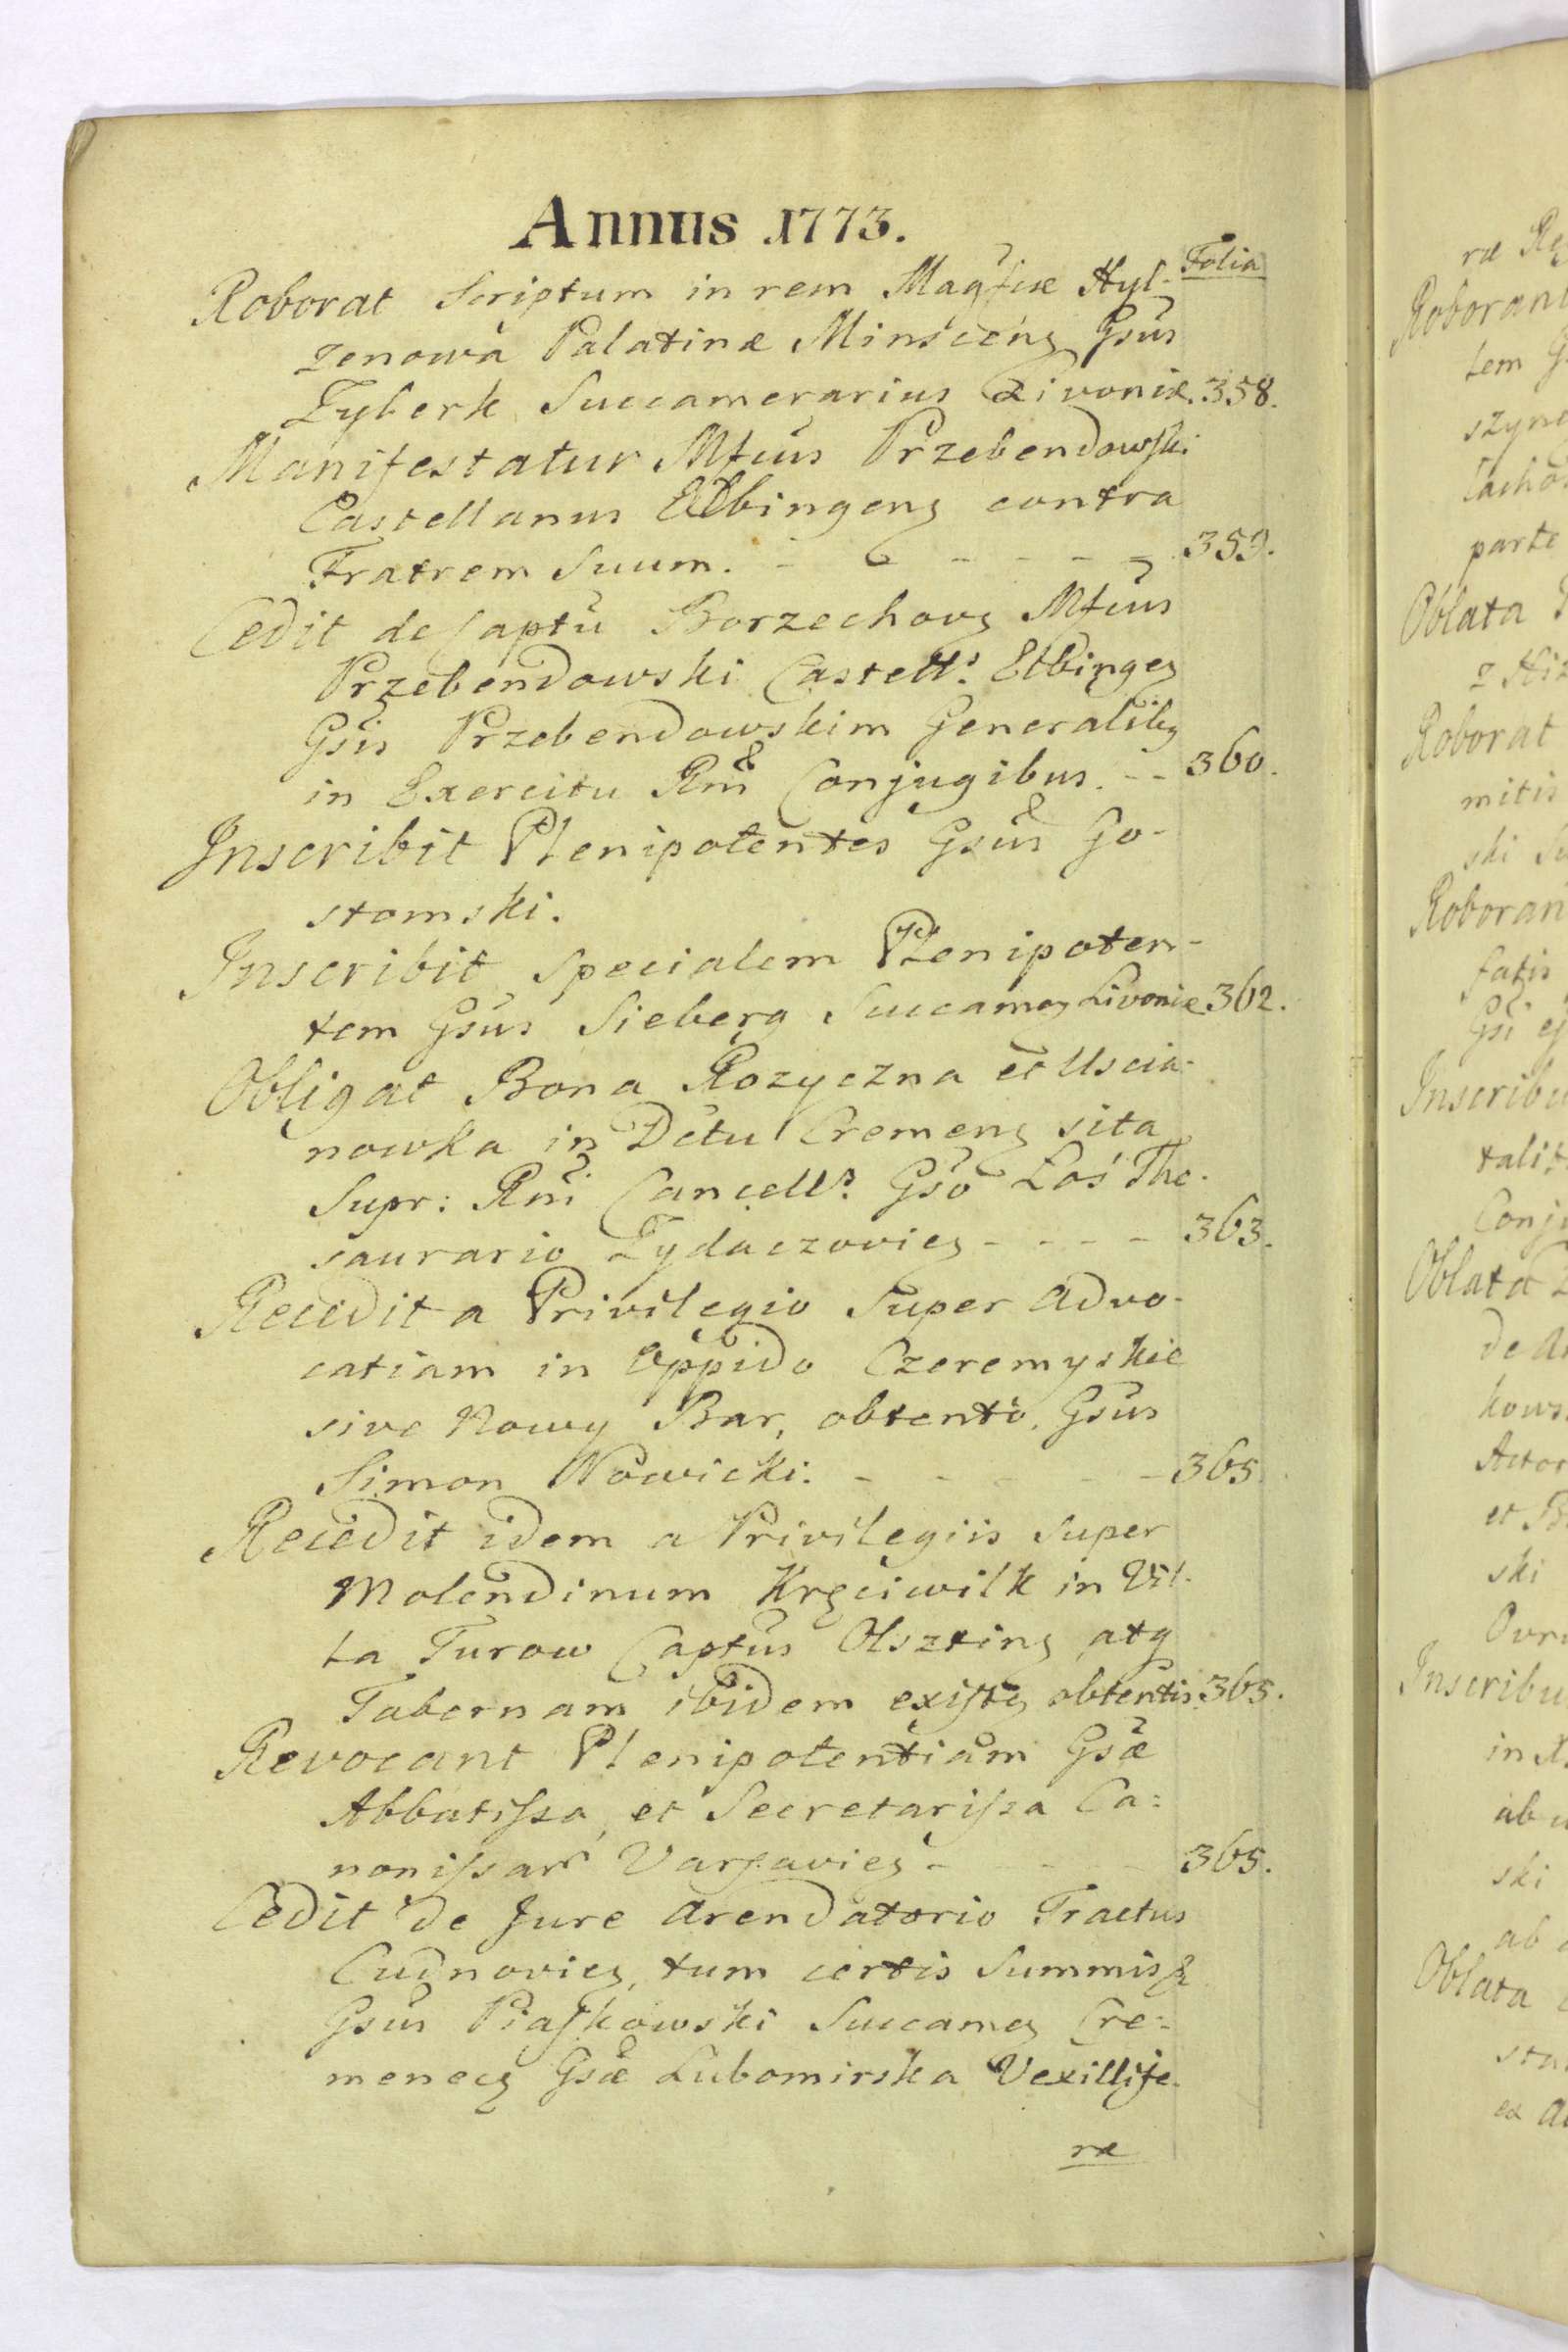 Annus 1773.
Folia
Roborat Scriptum in rem Magfcæ Hyl-
zenowa Palatinæ Minsceng Gsus
Zyberk Succamerarius Livoniæ. 358.
Manifestatur Mfcus Przebendowski
Castellanus Elbingeng contra
Fratrem Suum. - - - - - 359.
Cedit de Captu Borzechovg Mfcus
Przebendowski Castell: Elbingeg
Gsis Przebendowskim Generalibg
in Exercitu Rni Conjugibus. -- 360.
Inscribit Plenipotentes Gsus Go-
stomski.
Inscribit Specialem Plenipoten-
tem Gsus Sieberg Succameg Livoniæ 362.
Obligat Bona Rozyczna et Uscia-
nowka in Dctu Cremeng sita
Supr: Rni Cancell: Gso Łoś The-
saurario Zydaczovieg - - - - 363.
Recedit a Privilegio Super Advo-
catiam in Oppido Czeremyskie
sive Nowy Bar, obtento, Gsus
Simon Nowicki. - - - - - 365.
Recedit idem a Privilegiis Super
Molendinum Kręciwilk in Vil-
la Turow Captus Olszting atq
Tabernam ibidem existeg obtentis. 365.
Revocant Plenipotentiam Gsæ
Abbatissa, et Secretarissa Ca=
nonissar Varsavieg - - - - 365.
Cedit de Jure Arendatorio Tractus
Cudnovieg, tum certis Summis
Gsus Piaskowski Succameg Cre=
menecg Gsæ Lubomirska Vexillife-
ræ
ræ
Roborant
tem
szyne
parte
Oblata
Roborat
mitis
ski
Roboran
fatis
Inscribu
Conju
Oblata
de
kows
Actor
et
ski
Inscribu
in
ab
ski
ab
Oblata
ex